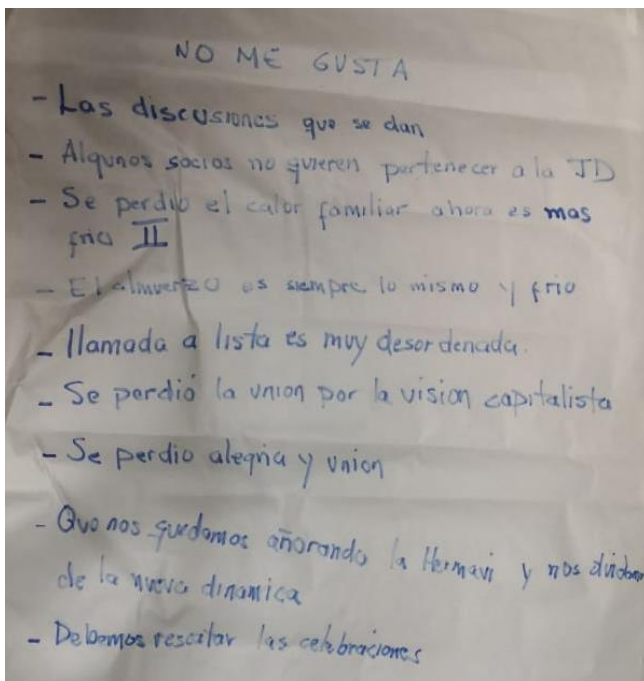 NO ME GUSTA
- Las discusiones que se dan
- Algunos socios no quieren pertenecer a la JD
- Se perdio el calor familiar ahora es mas
frio II
- El almuerzo es siempre lo mismo y frio
- llamada a lista es muy desordenada.
- Se perdió la union por la vision capitalista
- Se perdio alegria y union
- Que nos quedamos añorando la Hermavi y nos
de la nueva dinamica
- Debemos rescatar las celebraciones